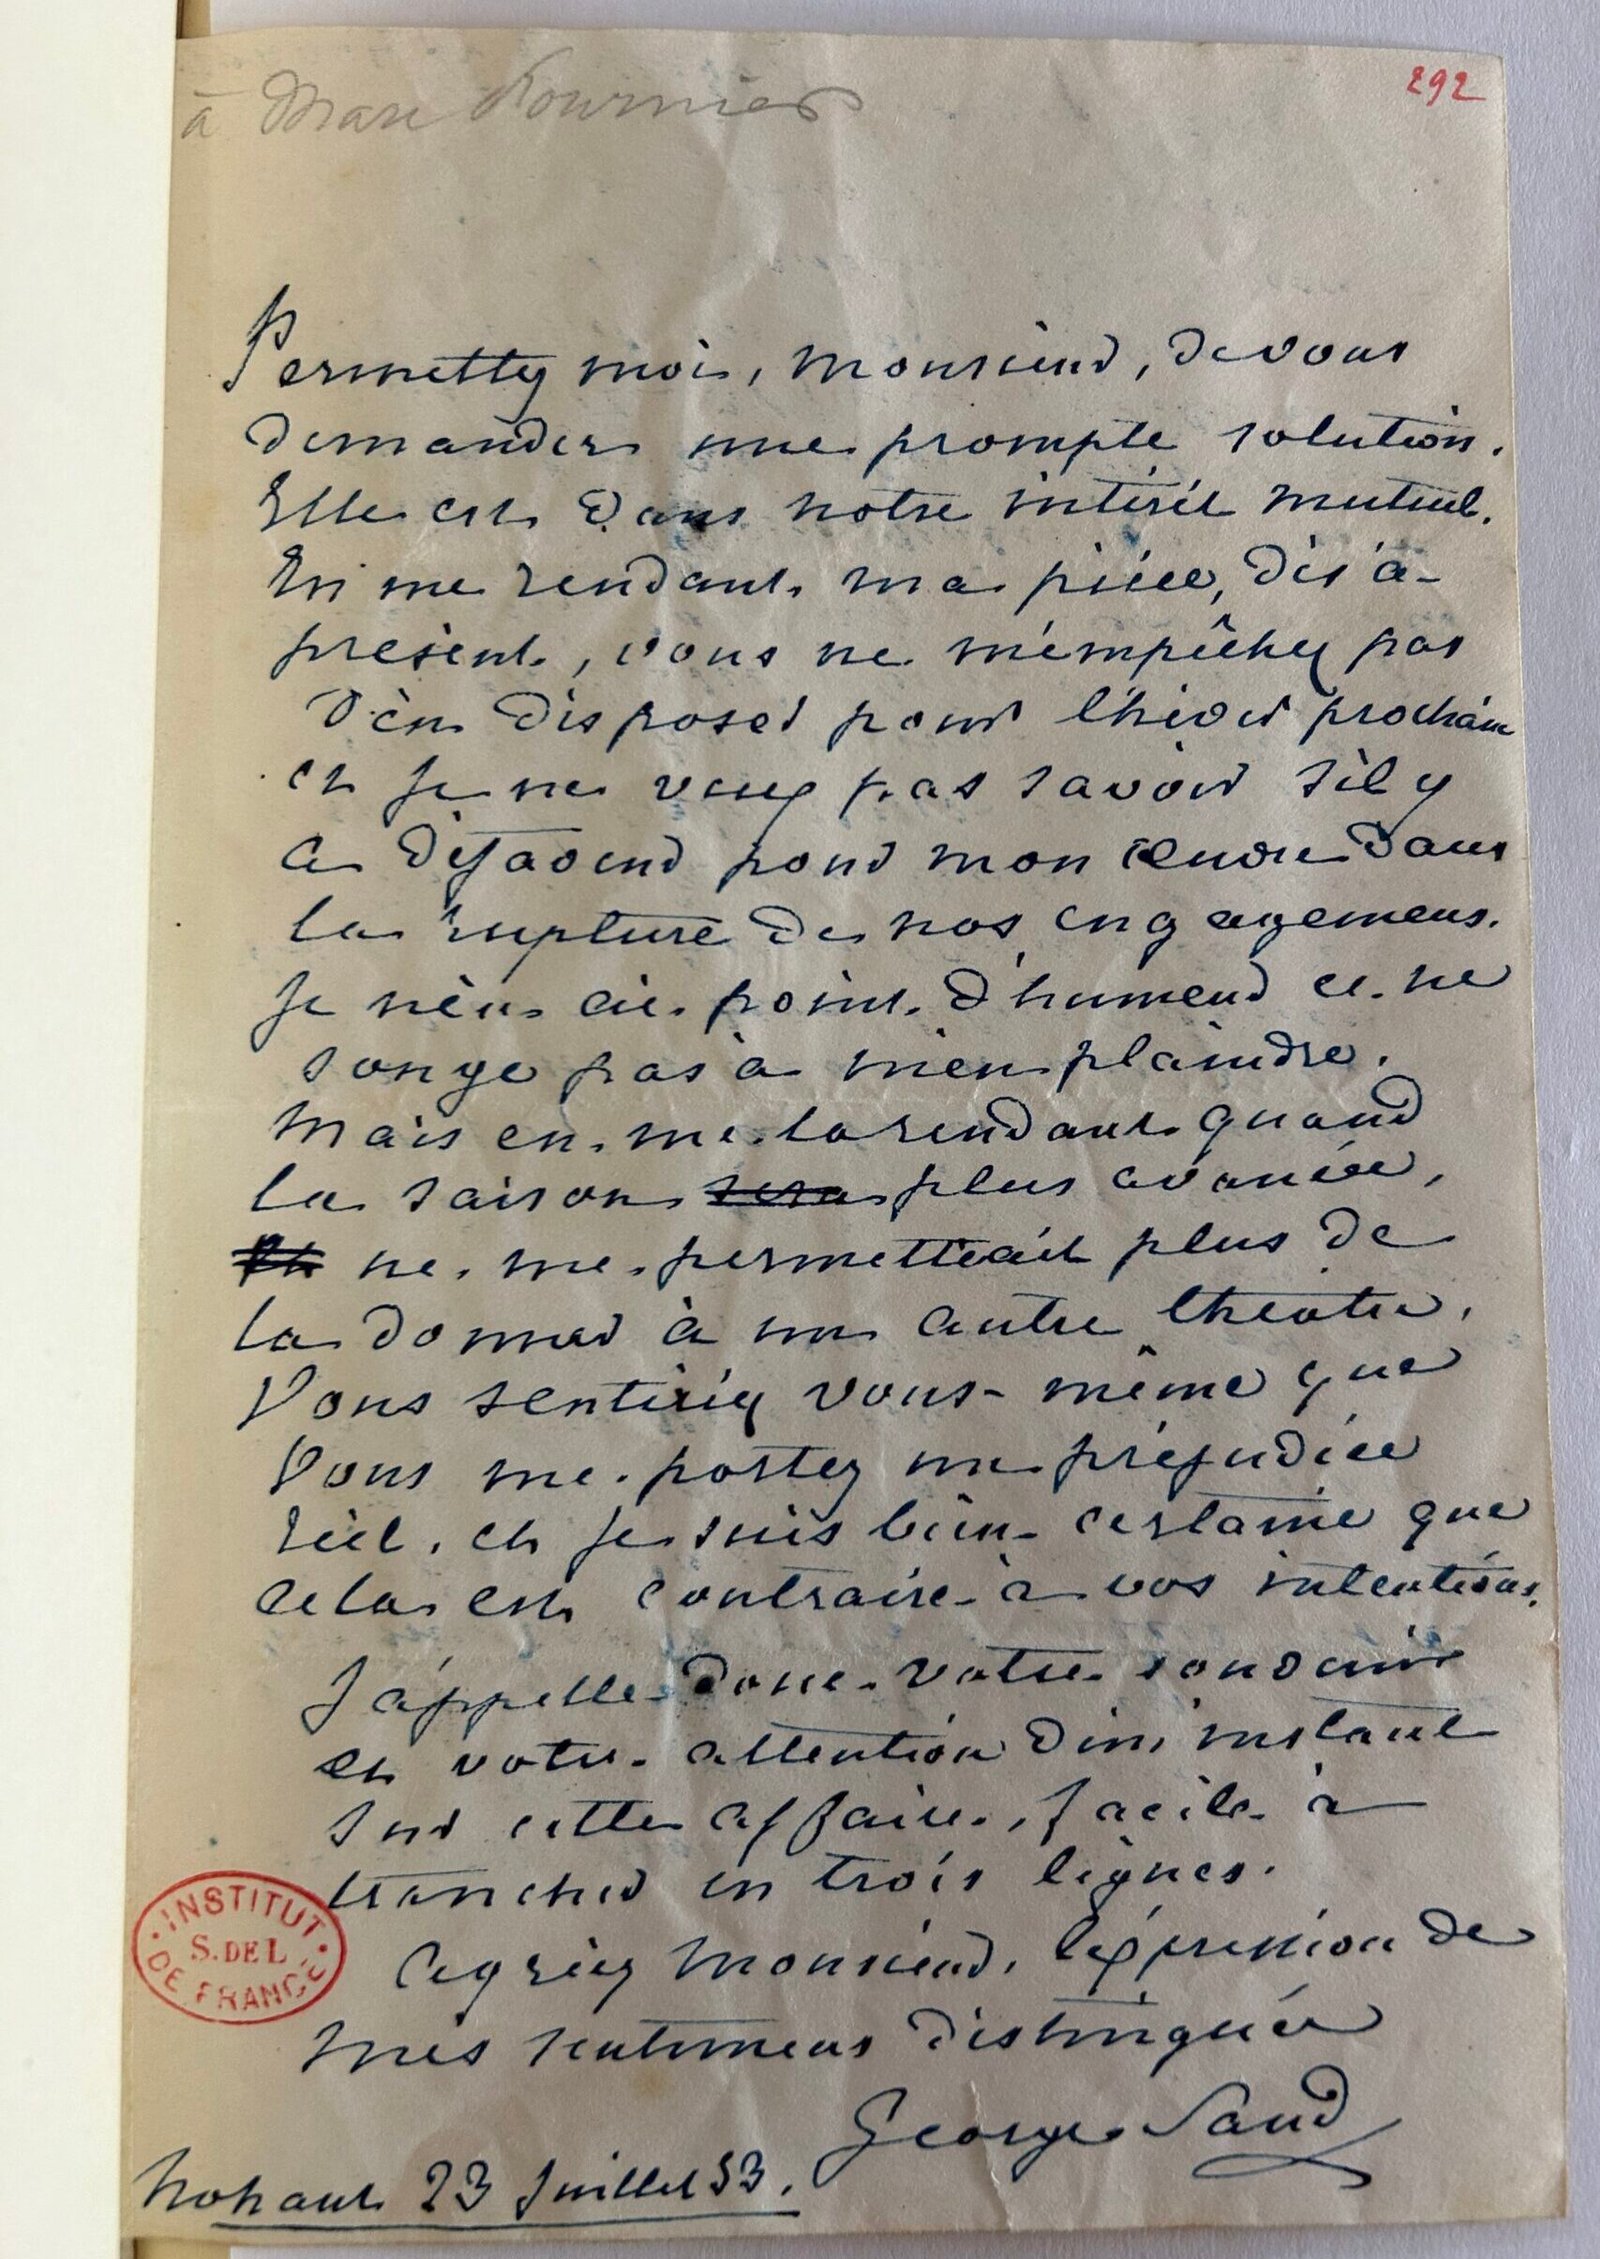 à Marc Fournier
292
Permettez moi, Monsieur, de vous
demander une prompte solution.
Elle est dans notre intérêt mutuel.
En me rendant ma pièce, dès à-
présent, vous ne m'empêchez pas
d'en disposer pour l'hiver prochain
et je ne veux pas savoir s'il y
a défaveur pour mon œuvre dans
la rupture de nos engagemens.
Je n'en ai point d'humeur et ne
songe pas à m'en plaindre.
Mais en me la rendant quand
la saison sera plus avancée,
ne me permettrait plus de
la donner à un autre théâtre,
Vous sentiriez vous-même que
Vous me portez un préjudice
réel, et je suis bien certaine que
cela est contraire à vos intentions.
J'appelle donc votre souvenir
et votre attention d'un instant
sur cette affaire, facile à
trancher en trois lignes.
Agréez Monsieur, l'expression de
mes sentimens distingués
George Sand
Nohant 23 Juillet 53.
INSTITUT
S. DE L
DE FRANCE